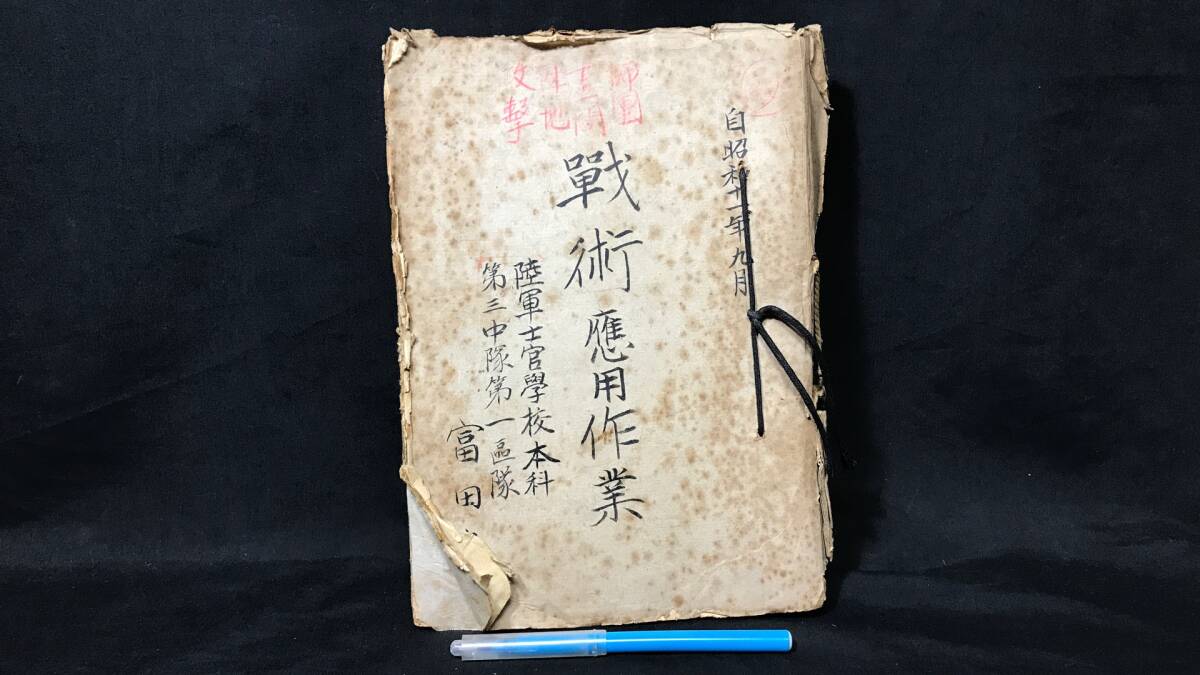 自昭和十一年九月
師団
陣地
攻撃
戰術應用作業
陸軍士官學校本科
第三中隊第一區隊
富田